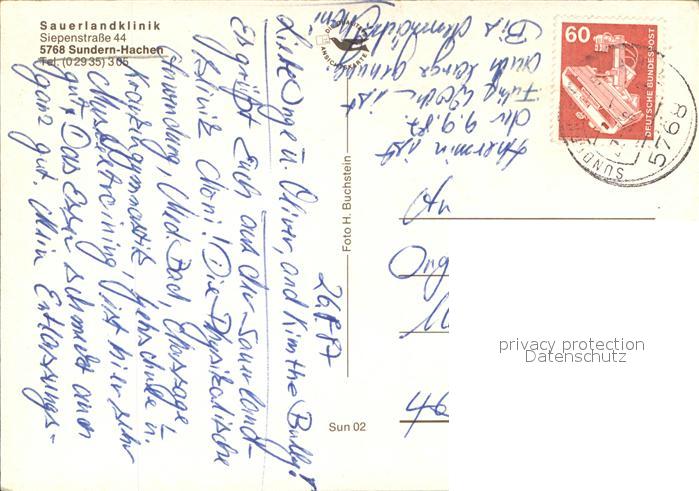 Sauerlandklinik
Siepenstraße 44
5768 Sundern-Hachen
Tel. (0 29 35) 3 05
26.8.87
Liebe Inge u. Oliver, and Kim the Bully!
Es grüßt Euch aus der Sauerland-
klinik Moni! Die Physikalische
Anwendung, Med. Bad, Massage
Krankengymnastik, Gehschule u.
Muskeltraining, ist hier sehr
gut. Das Essen schmeckt auch
ganz gut. Mein Entlassungs-
termin ist
der 9.9.87.
Fünf Wochen ist
auch lange genug
Bis demnächst Moni
Foto H. Buchstein
Sun 02
ANSICHTSKARTEN
60
DEUTSCHE BUNDESPOST
SUNDERN
5768
privacy protection
Datenschutz